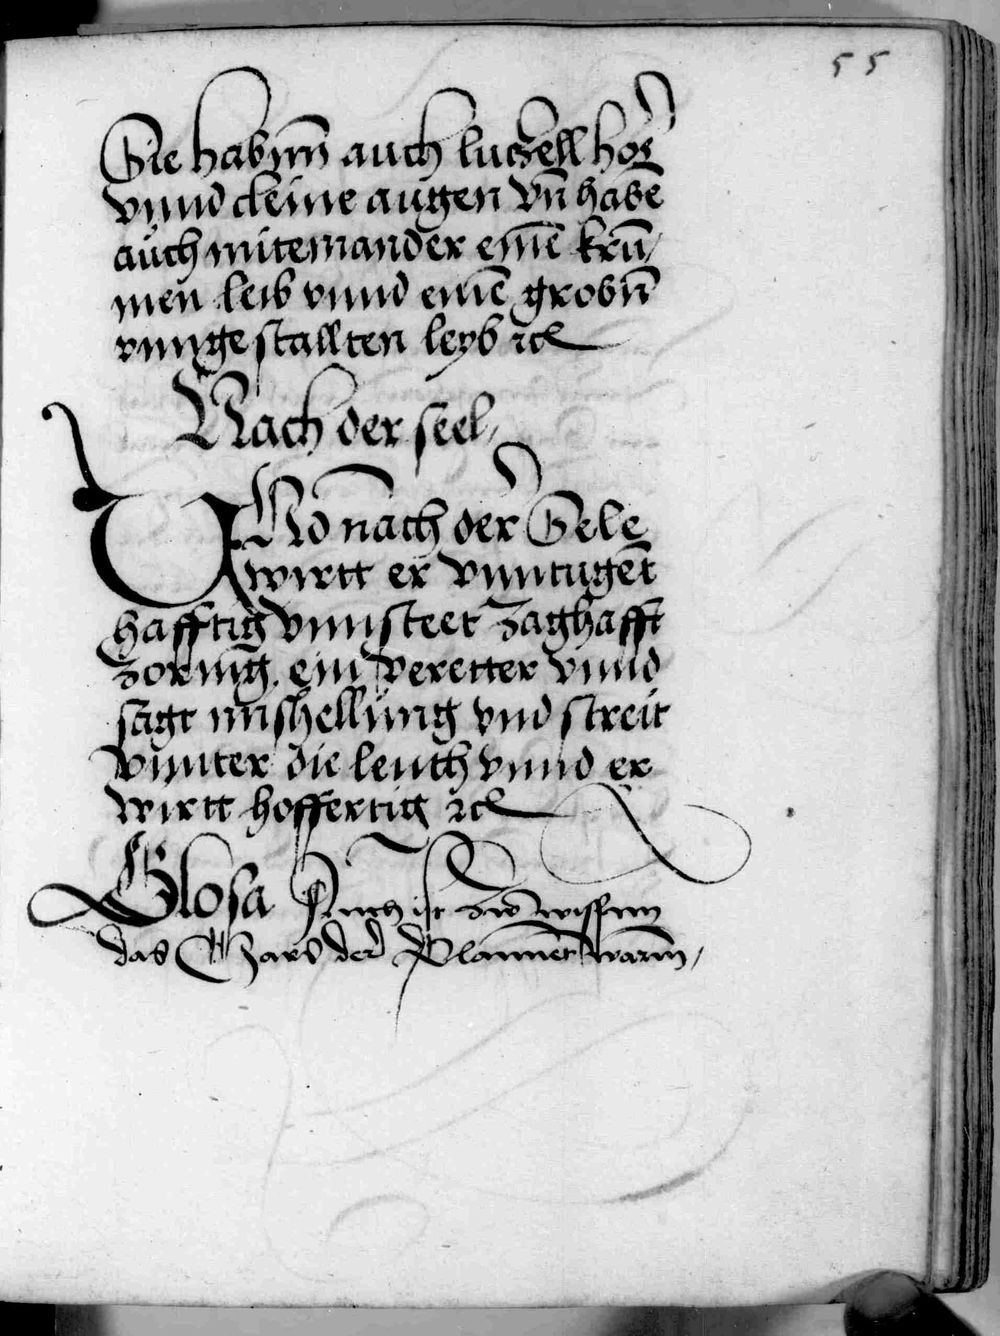 55
Sie habynn auch lutzell hor
vnnd cleine augen vn̄ habē
auch miteinander einē krū/
men leib vnnd einē grobn̄
vnngestallten leyb ꝛc
Nach der seel,
VNd nach der Sele
wirtt er vnntugēt
hafftig vnnsteet zaghafft
zornīg. ein veretter vnnd
sagt mishellūng vnd streit
vnnter die leuth vnnd er
wirtt hoffertig ꝛc
Glosa Auch ist zw wissenn
das Mars der Plannet warm,